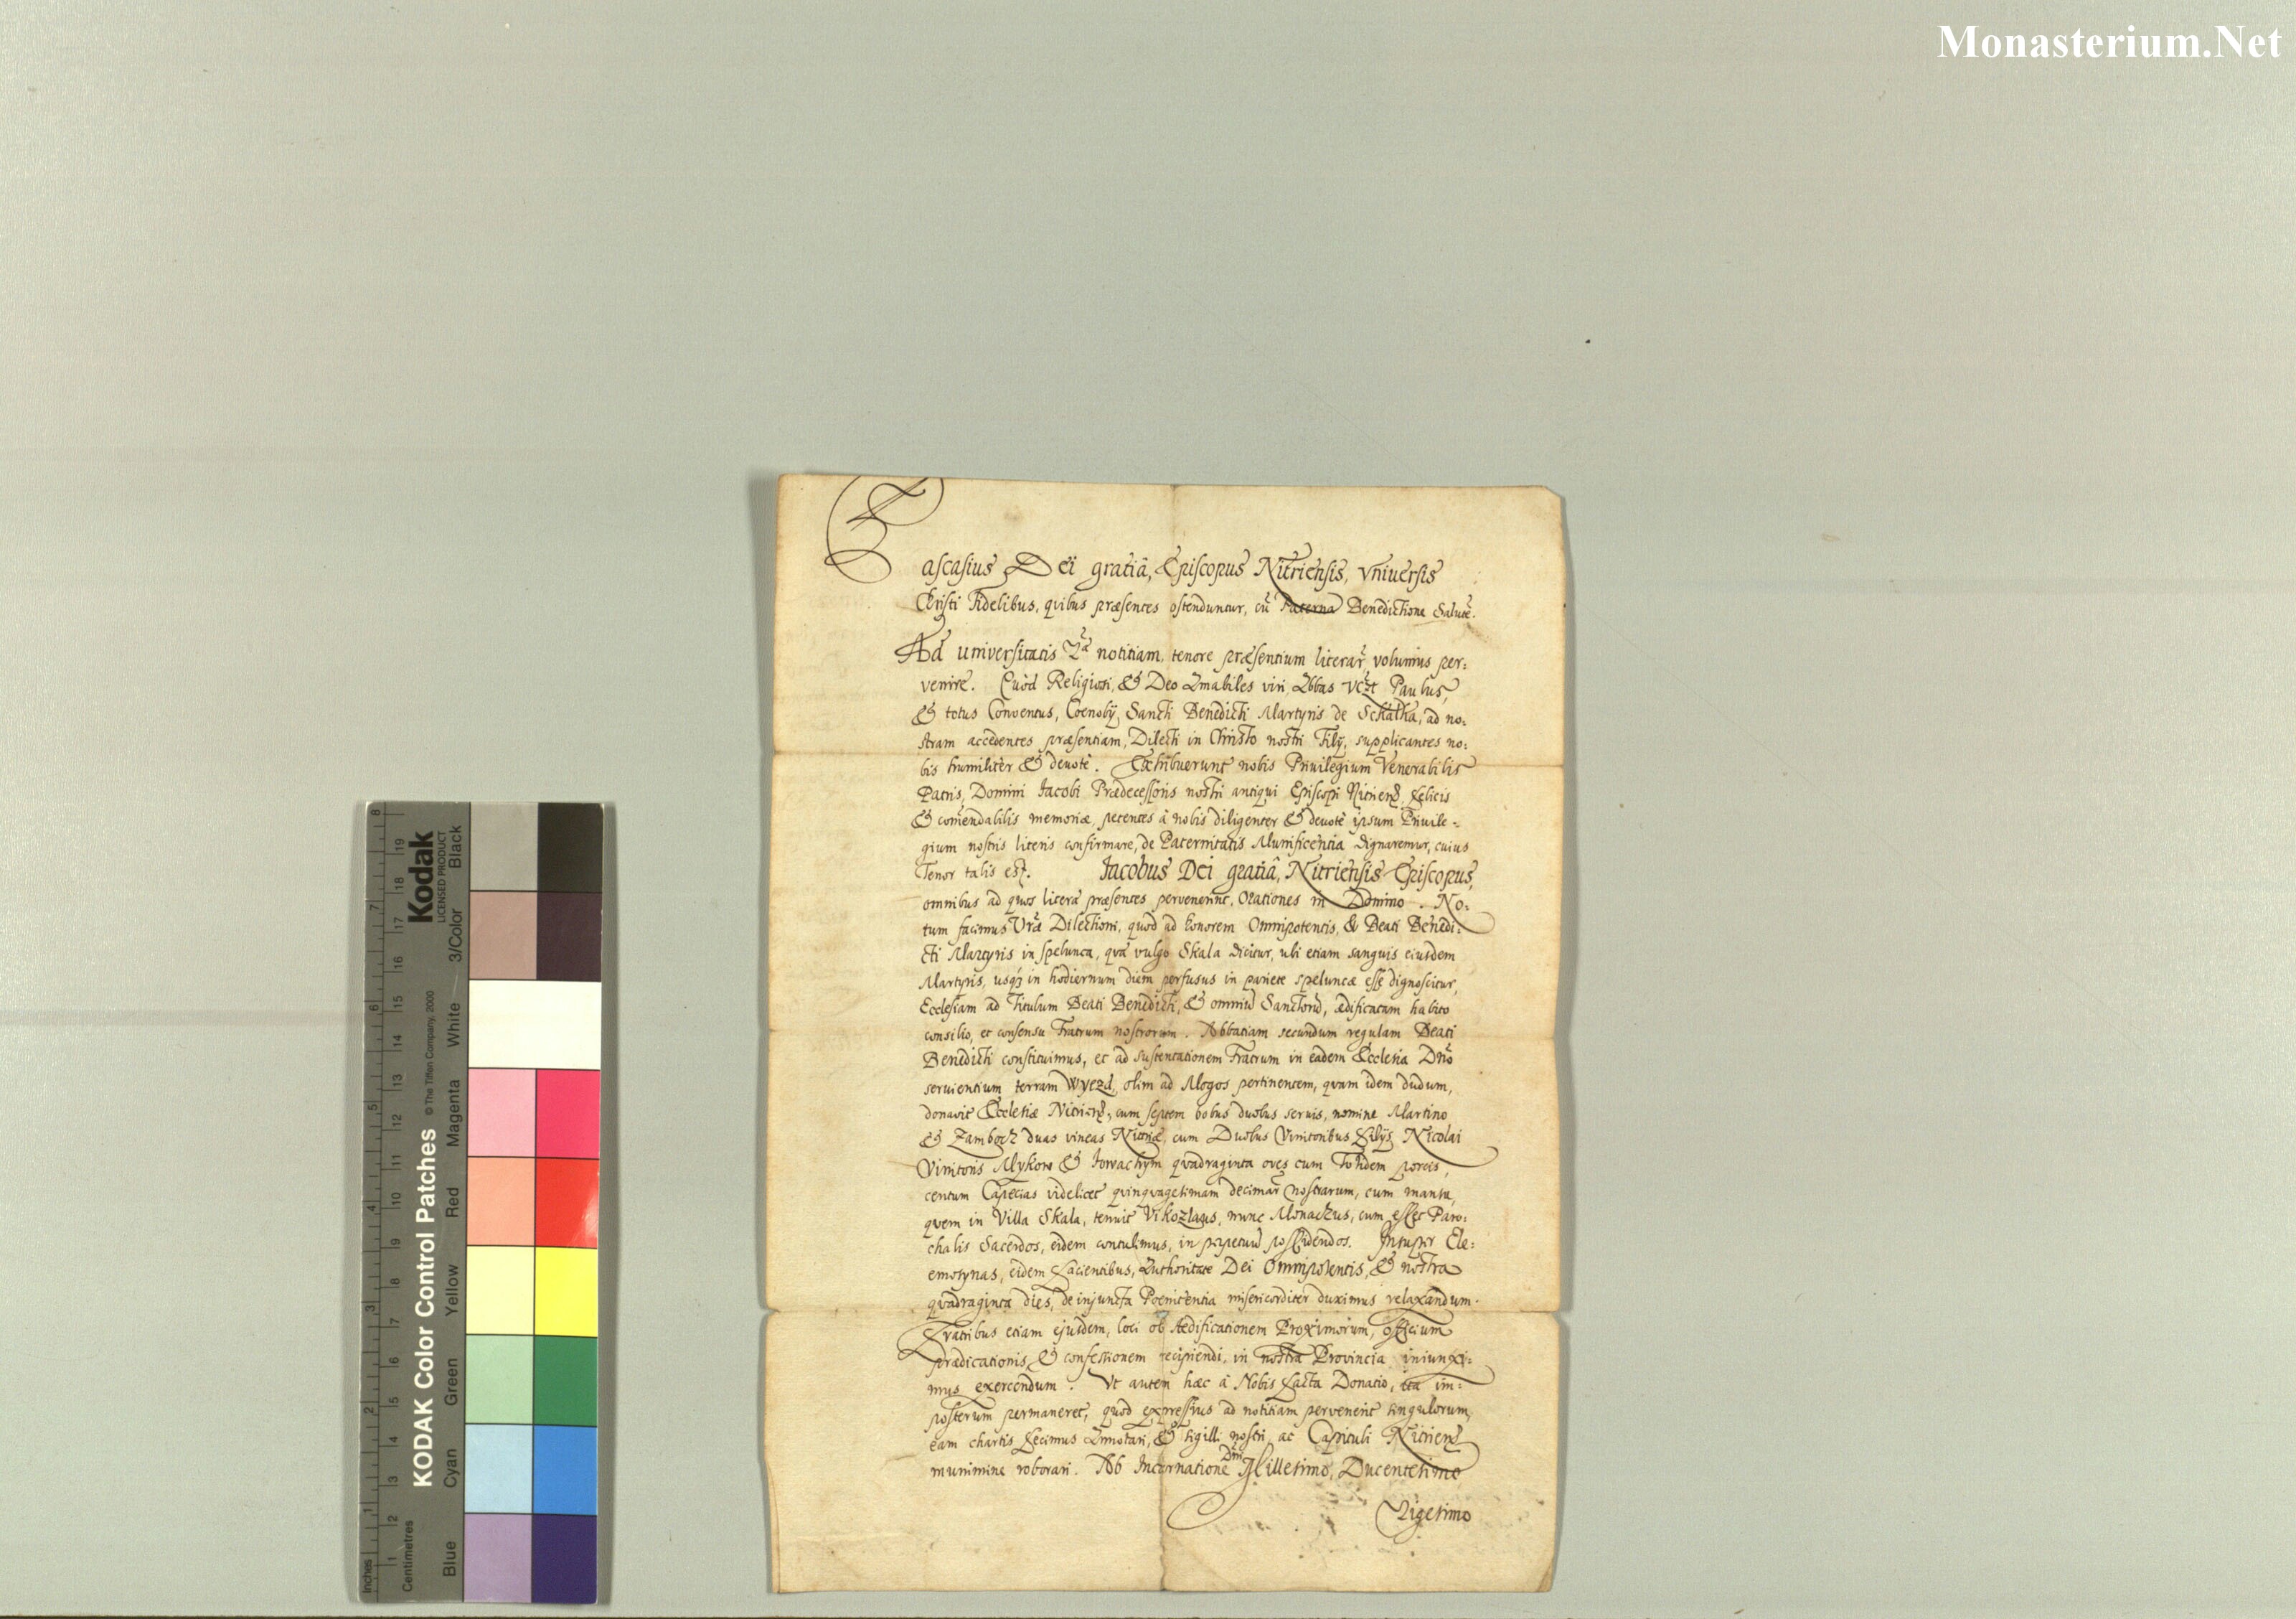 Monasterium.Net
Pascasius Dei gratiâ, Episcopus Nitriensis, vniuersis
Christi Fidelibus, quibus præsentes ostenduntur, cũ Paterna Benedictione Salutẽ.
Ad universitatis notitiam, tenore præsentium literar̃, volumus per:
venire. Quòd Religiosi, & Deo Amabiles viri, Abbas Paulus,
& totus Conventus, Coenobij, Sancti Benedicti Martyris de Schalka, ad no:
stram accedentes præsentiam, Dilecti in Christo nostri Filij, supplicantes no:
bis humilitèr & deuotè. Exhibuerunt nobis Priuilegium Venerabilis
Patris, Domini Jacobi Prædecessoris nostri antiqui Episcopi felicis
& com̃endabilis memoriæ, petentes à nobis diligenter & deuotè ipsum Priuile:
gium nostris literis confirmare, de Paternitatis Munificentia dignaremur, cuius
Tenor talis est. Jacobus Dei gratiâ, Nitriensis Episcopus,
omnibus ad quos literæ præsentes pervenerint, Orationes in Domino. No:
tum facimus Vrã Dilectioni, quod ad honorem Omnipotentis, & Beati Benedi:
cti Martyris in spelunca, quæ vulgo Skala dicitur, ubi etiam sanguis eiusdem
Martyris, usq3 in hodiernum diem perfusus in pariete speluncæ esse dignoscitur,
Ecclesiam ad Titulum Beati Benedicti, & omniũ Sanctorũ, ædificatam habito
consilio, et consensu Fratrum nostrorum. Abbatiam secundum regulam Beati
Benedicti constituimus, et ad sustentationem Fratrum in eadem Ecclesia Dño
seruientium terram Wyezd, olim ad Mogos pertinentem, quam idem dudum,
donavit Ecclesiæ cum septem bobus duobus seruis, nomine Martino
& Zamboch duas vineas Nitriæ, cum Duobus Vinitoribus filijs Nicolai
Vinitoris Mykow & Jowachym quadraginta oves cum Totidem porcis,
centum Capecias videlicet quinquagesimam decimar̃ nostrarum, cum mansu,
quem in Villa Skala, tenuit nunc Monachus, cum esset Paro:
chalis Sacerdos, eidem contulimus, in perpetuũ possidendos. Insuper Ele:
emosynas, eidem facientibus, Authoritate Dei Omnipotentis, & nostra
quadraginta dies, de injuncta Poenitentia misericorditer duximus relaxandum.
Fratribus etiam ejusdem, loci ob Ædificationem Proximorum, officium
prædicationis & confessionem recipiendi, in nostra Provincia iniunxi:
mus exercendum. Vt autem hæc à Nobis facta Donatio, ita im:
posterum permaneret, quod expressius ad notitiam pervenerit singulorum,
eam chartis fecimus Annotari, & sigilli nostri, ac Capituli
munimine roborari. Ab Incarnatione Dñi Millesimo, Ducentesimo
Vigesimo
KODAK Color Control Patches
Kodak
LICENSED PRODUCT
© The Tiffen Company, 2000
Inches 1 2 3 4 5 6 7 8
Centimetres 1 2 3 4 5 6 7 8 9 10 11 12 13 14 15 16 17 18 19
Blue
Cyan
Green
Yellow
Red
Magenta
White
3/Color
Black